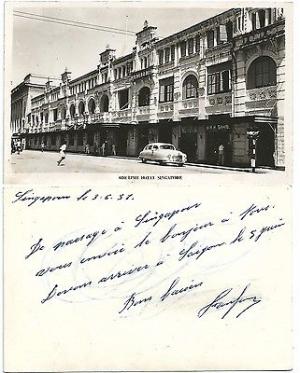 ADELPHI HOTEL SINGAPORE
Singapour le 3.6.51.
De passage à Singapour
vous envoie le bonjour à tous.
Devons arriver à Saïgon le 5 juin
Bons baisers